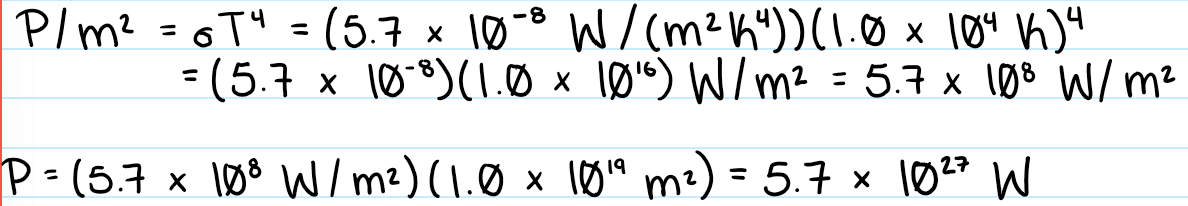 P/m² = σT⁴ = (5.7 × 10⁻⁸ W/(m²K⁴))(1.0 × 10⁴ K)⁴
= (5.7 × 10⁻⁸)(1.0 × 10¹⁶) W/m² = 5.7 × 10⁸ W/m²
P = (5.7 × 10⁸ W/m²)(1.0 × 10¹⁹ m²) = 5.7 × 10²⁷ W